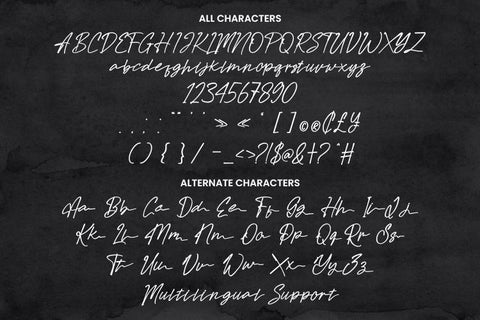 ALL CHARACTERS
ABCDEFGHIJKLMNOPQRSTUVWXYZ
abcdefghijklmnopqrstuvwxyz
1234567890
. , : ; . . " " ' ' » « ‘ [ ] © ® ₵ £ ¥
( ) { } / - _ < > ? ! $ @ & † ? * #
ALTERNATE CHARACTERS
Aa Bb Ca Dd Ee Ff Gg Hh Ii Jj
Kk Ll Mm Nn Oo Pp Qq Rr Ss
Tt Uu Vv Ww Xx Yy Zz
Multilingual Support